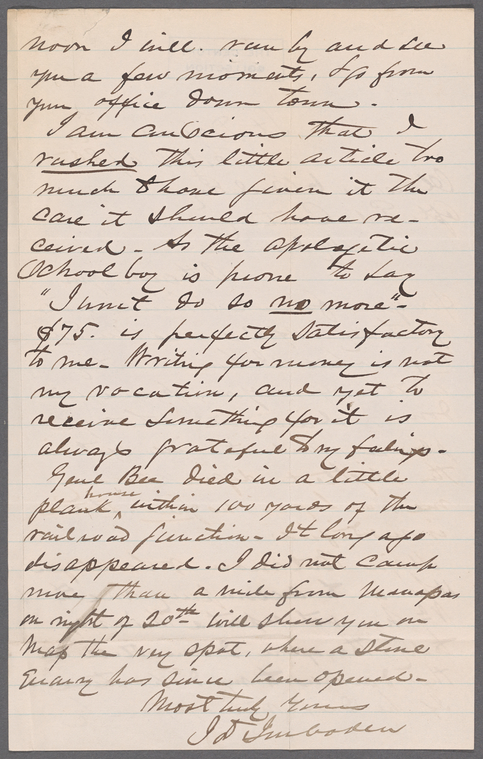 noon I will. run by and see
you a few moments, & go from
your office down town.
I am conscious that I
rushed this little article too
much & have given it the
care it should have re-
ceived - As the apologetic
School boy is prone to say
"I wont do so no more" -
$75. is perfectly satisfactory
to me - Writing for money is not
my vocation, and yet to
receive something for it is
always grateful to my feelings -
Genl Bee died in a little
plank house within 100 yards of the
railroad junction - It long ago
disappeared. I did not camp
more than a mile from Manassas
on night of 20th - Will show you on
Map the very spot, where a stone
Quarry has since been opened -
Most truly yours
J D Imboden